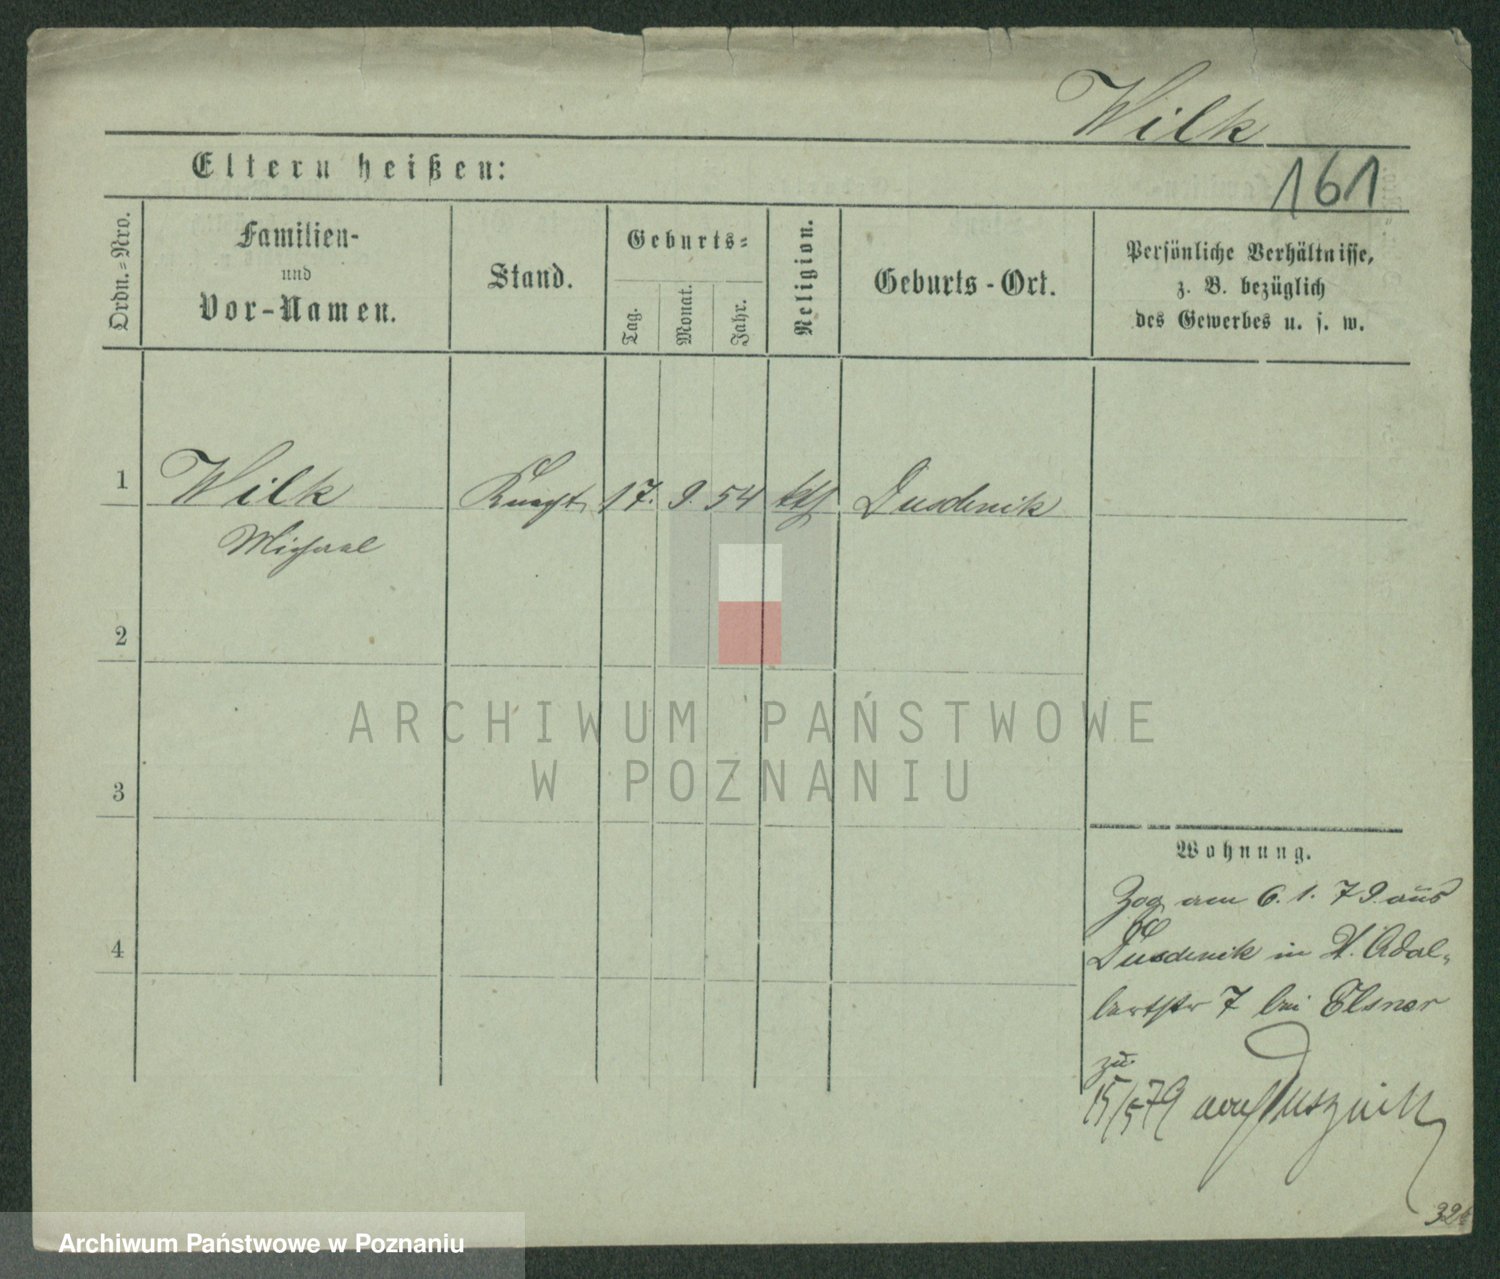 Wilk
161
Eltern heißen:
Ordn.-Nro.
Familien-
und
Vor-Namen.
Stand.
Geburts-
Tag.
Monat.
Jahr.
Religion.
Geburts-Ort.
Persönliche Verhältnisse,
z. B. bezüglich
des Gewerbes u. s. w.
1 Wilk Knecht 17. 9. 54 kth Duschnik
Michael
2
3
4
ARCHIWUM PAŃSTWOWE
W POZNANIU
Wohnung.
Zog am 6. 1. 79. aus
Duschnik in St. Adal-
bertstr 7 bei Elsner
zu
15/5 79 auf Dusznik
Archiwum Państwowe w Poznaniu